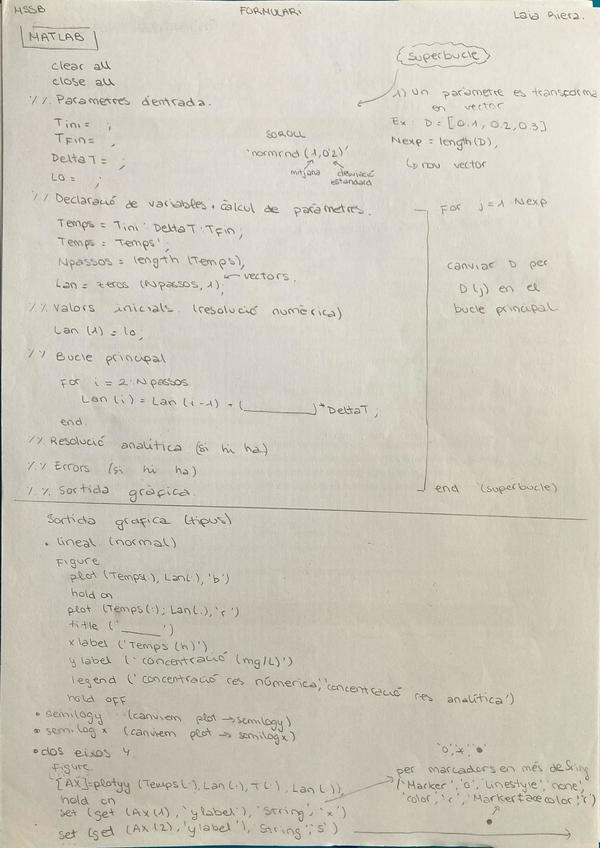 MSSB FORMULARI Laia Riera.
MATLAB
clear all
close all
%% Parametres d'entrada.
Tini = ;
TFin = ;
DeltaT = ;
L0 = ;
SOROLL
'normrnd (1,0'2)'
mitjana desviació estandard
%% Declaració de variables + càlcul de paràmetres.
Temps = Tini : DeltaT : TFin;
Temps = Temps';
Npassos = length (Temps);
Lan = zeros (Npassos, 1); ← vectors.
%% Valors inicials. (resolució numèrica)
Lan (1) = lo;
%% Bucle principal
For i = 2:Npassos
Lan (i) = Lan (i-1) + (________) * DeltaT;
end.
%% Resolució analítica (si hi ha)
%% Errors (si hi ha)
%% Sortida gràfica.
Superbucle
1) Un paràmetre es transforma
en vector
Ex: D = [0.1, 0.2, 0.3]
Nexp = length(D),
↳ nou vector
For j=1 Nexp
canviar D per
D(j) en el
bucle principal
end (superbucle)
Sortida grafica (tipus)
• lineal (normal)
Figure
plot (Temps(:), Lan(:), 'b')
hold on
plot (Temps(:); Lan(:), 'r')
title ('_____')
xlabel ('Temps (h)')
ylabel ('concentració (mg/L)')
legend ('concentració res númerica', 'concentració res analítica')
hold off
• semilogy (canviem plot → semilogy)
• semilogx (canviem plot → semilogx)
• dos eixos y
Figure
[Ax]=plotyy (Temps(:), Lan(:), T(:), Lan(:)),
hold on
set (get (Ax(1), 'ylabel'), 'String', 'x')
set (get (Ax(2), 'ylabel'), 'String', 'S')
'o', '*', '•'
per marcadors en més de String
('Marker', 'o', 'linestyle', 'none',
'color', 'r', 'Markerfacecolor', 'r')